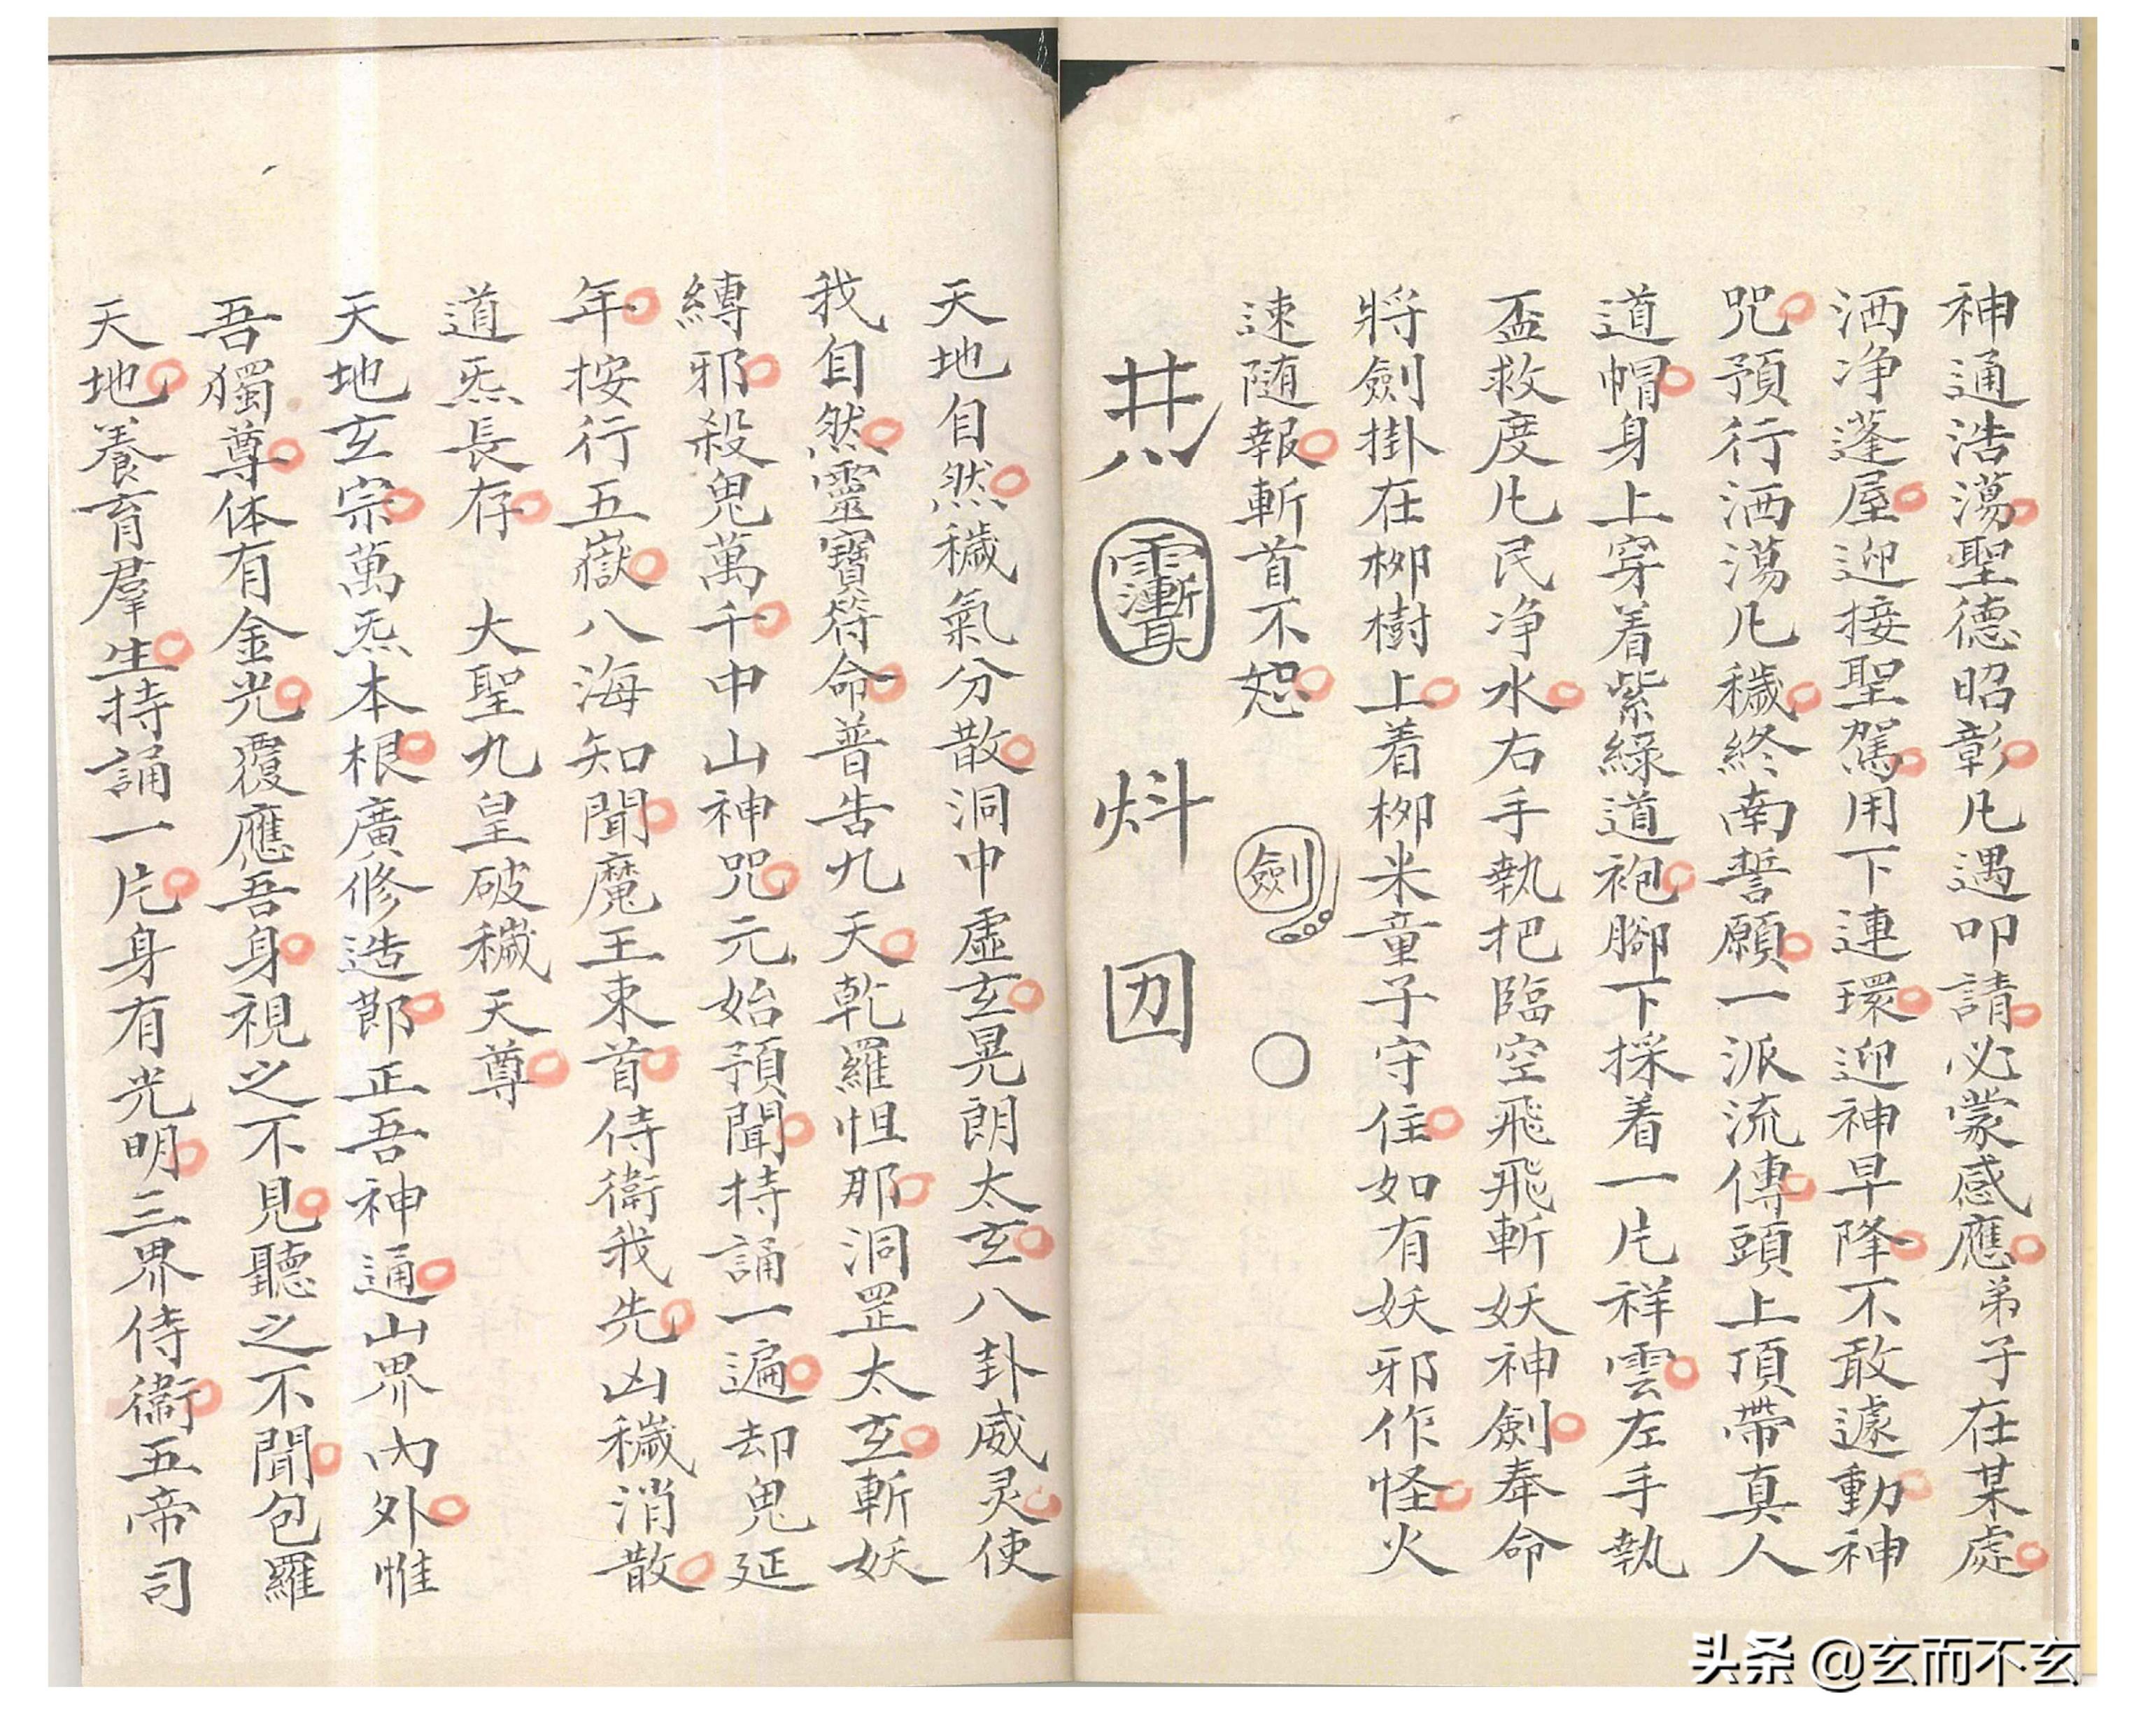 神通浩蕩聖德昭彰凢遇叩請必蒙感應弟子在某處
洒净蓬屋迎接聖駕用下連環迎神早降不敢遽動神
咒預行洒蕩凢穢終南誓願一派流傳頭上頂帶真人
道帽身上穿着紫綠道袍腳下採着一片祥雲左手執
盃救度凢民净水右手執把臨空飛飛斬妖神劍奉命
將劍掛在柳樹上着柳米童子守住如有妖邪作怪火
速随報斬首不恕 劍 〇
囬
天地自然穢氣分散洞中虛玄晃朗太玄八卦威灵使
我自然靈寶符命普告九天乾羅怛那洞罡太玄斬妖
縛邪殺鬼萬千中山神咒元始預聞持誦一遍却鬼延
年按行五嶽八海知聞魔王束首侍衛我先凶穢消散
道炁長存 大聖九皇破穢天尊
天地玄宗萬炁本根廣修造郎正吾神通山界內外惟
吾獨尊体有金光覆應吾身視之不見聽之不聞包羅
天地養育羣生持誦一片身有光明三界侍衛五帝司
头条 @玄而不玄